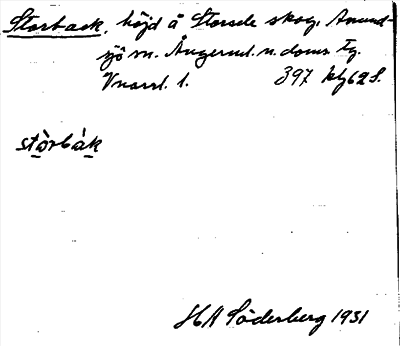 Storback, höjd å Storsele skog, Anund-
sjö sn. Ångerml. n. doms. tg.
Vnorrl. l. 397 kbl 62 S.
stòrbák
HA Söderberg 1931